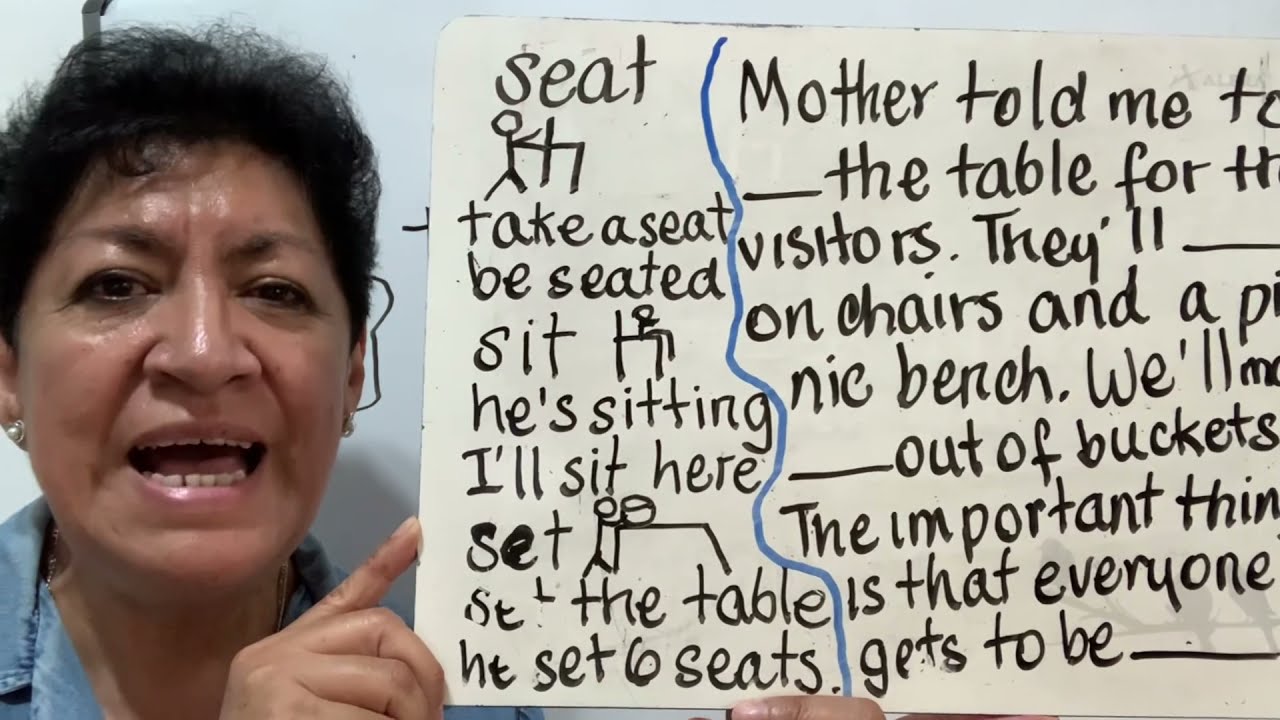 seat
take a seat
be seated
sit
he's sitting
I'll sit here
set
set the table
he set 6 seats.
Mother told me to
__ the table for th
visitors. They'll __
on chairs and a pi
nic bench. We'll ma
__ out of buckets
The important thin
is that everyone
gets to be __